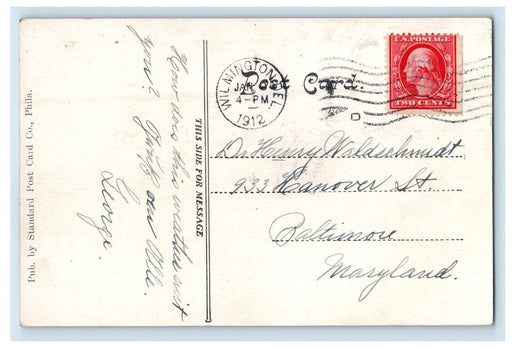 Post Card.
U.S. POSTAGE
TWO CENTS
WILMINGTON, DEL.
JAN
4-PM
1912
D
Dr Henry Waldschmidt
933 Hanover St.
Baltimore
Maryland.
THIS SIDE FOR MESSAGE
How does this weather suit
you?
George.
Pub. by Standard Post Card Co., Phila.